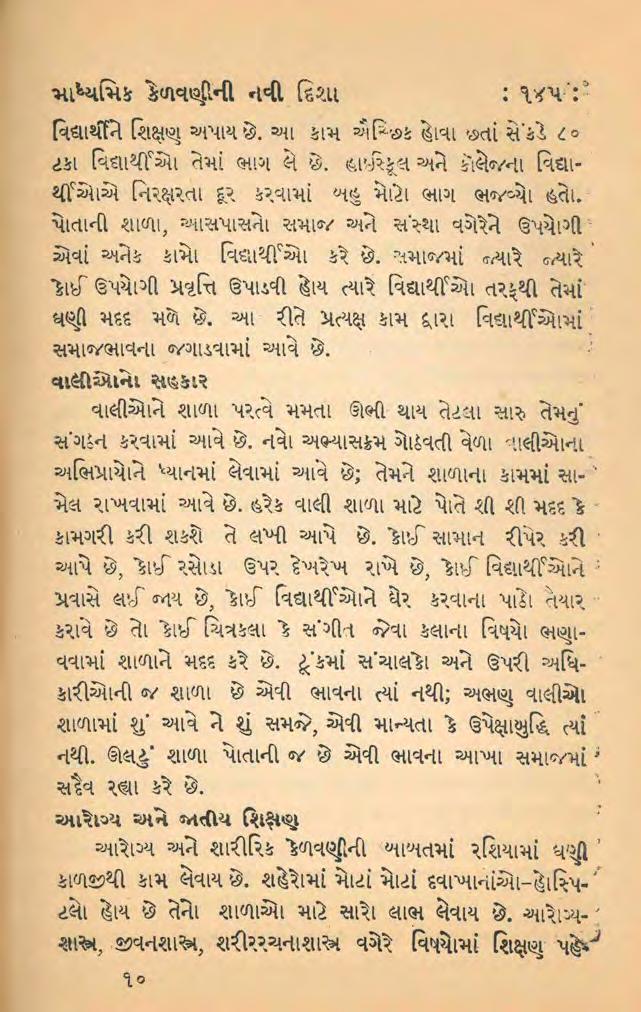 માધ્યમિક કેળવણીની નવી દિશા : ૧૪૫ :
વિદ્યાર્થીને શિક્ષણ અપાય છે. આ કામ ઐચ્છિક હોવા છતાં સેંકડે ૮૦
ટકા વિદ્યાર્થીઓ તેમાં ભાગ લે છે. હાઈસ્કૂલ અને કૉલેજના વિદ્યા-
ર્થીઓએ નિરક્ષરતા દૂર કરવામાં બહુ મોટો ભાગ ભજવ્યો હતો.
પોતાની શાળા, આસપાસનો સમાજ અને સંસ્થા વગેરેને ઉપયોગી
એવાં અનેક કામો વિદ્યાર્થીઓ કરે છે. સમાજમાં જ્યારે જ્યારે
કોઈ ઉપયોગી પ્રવૃત્તિ ઉપાડવી હોય ત્યારે વિદ્યાર્થીઓ તરફથી તેમાં
ઘણી મદદ મળે છે. આ રીતે પ્રત્યક્ષ કામ દ્વારા વિદ્યાર્થીઓમાં
સમાજભાવના જગાડવામાં આવે છે.
વાલીઓનો સહકાર
વાલીઓને શાળા પરત્વે મમતા ઊભી થાય તેટલા સારુ તેમનું
સંગઠન કરવામાં આવે છે. નવો અભ્યાસક્રમ ગોઠવતી વેળા વાલીઓના
અભિપ્રાયોને ધ્યાનમાં લેવામાં આવે છે; તેમને શાળાના કામમાં સા-
મેલ રાખવામાં આવે છે. હરેક વાલી શાળા માટે પોતે શી શી મદદ કે
કામગરી કરી શકશે તે લખી આપે છે. કોઈ સામાન રીપેર કરી
આપે છે, કોઈ રસોડા ઉપર દેખરેખ રાખે છે, કોઈ વિદ્યાર્થીઓને
પ્રવાસે લઈ જાય છે, કોઈ વિદ્યાર્થીઓને ઘેર કરવાના પાઠો તૈયાર
કરાવે છે તો કોઈ ચિત્રકલા કે સંગીત જેવા કલાના વિષયો ભણા-
વવામાં શાળાને મદદ કરે છે. ટૂંકમાં સંચાલકો અને ઉપરી અધિ-
કારીઓની જ શાળા છે એવી ભાવના ત્યાં નથી; અભણ વાલીઓ
શાળામાં શું આવે ને શું સમજે, એવી માન્યતા કે ઉપેક્ષાબુદ્ધિ ત્યાં
નથી. ઊલટું શાળા પોતાની જ છે એવી ભાવના આખા સમાજમાં
સદૈવ રહ્યા કરે છે.
આરોગ્ય અને જાતીય શિક્ષણ
આરોગ્ય અને શારીરિક કેળવણીની બાબતમાં રશિયામાં ઘણી
કાળજીથી કામ લેવાય છે. શહેરોમાં મોટાં મોટાં દવાખાનાંઓ-હૉસ્પિ-
ટલો હોય છે તેનો શાળાઓ માટે સારો લાભ લેવાય છે. આરોગ્ય-
શાસ્ત્ર, જીવનશાસ્ત્ર, શરીરરચનાશાસ્ત્ર વગેરે વિષયોમાં શિક્ષણ પહે-
૧૦